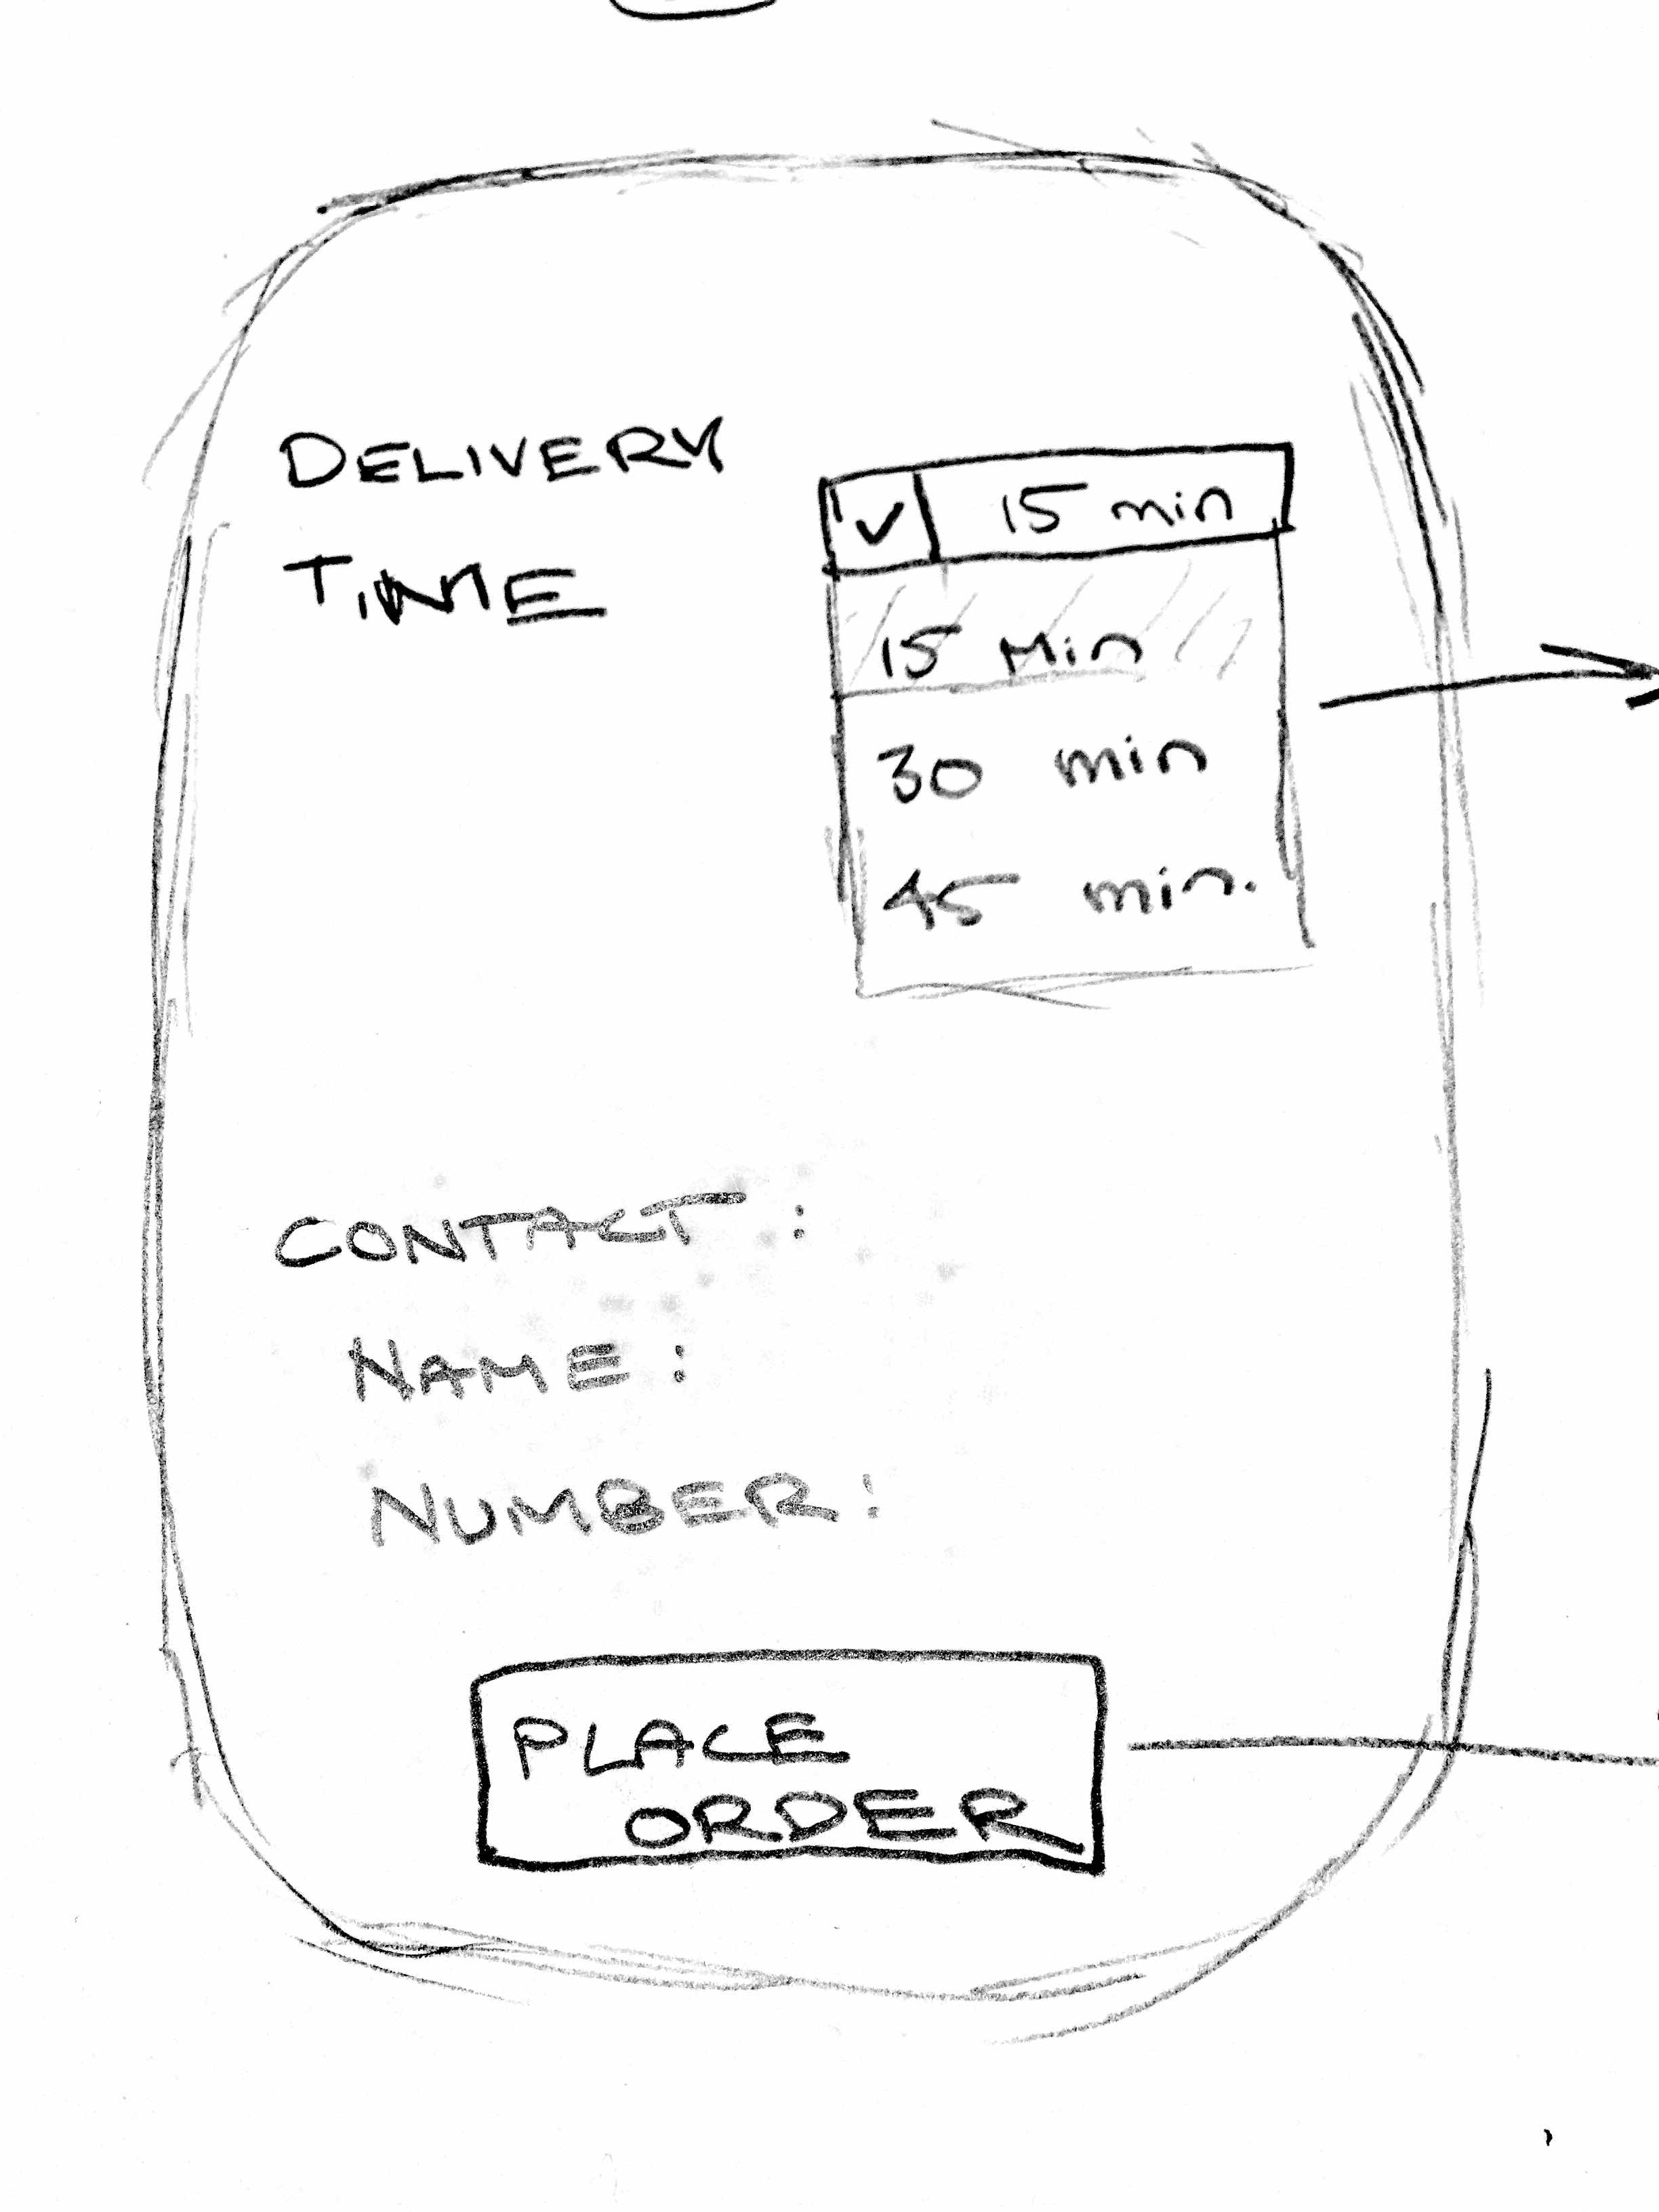 DELIVERY
TIME
V 15 min
15 Min
30 min
45 min.
CONTACT :
NAME :
NUMBER :
PLACE
ORDER